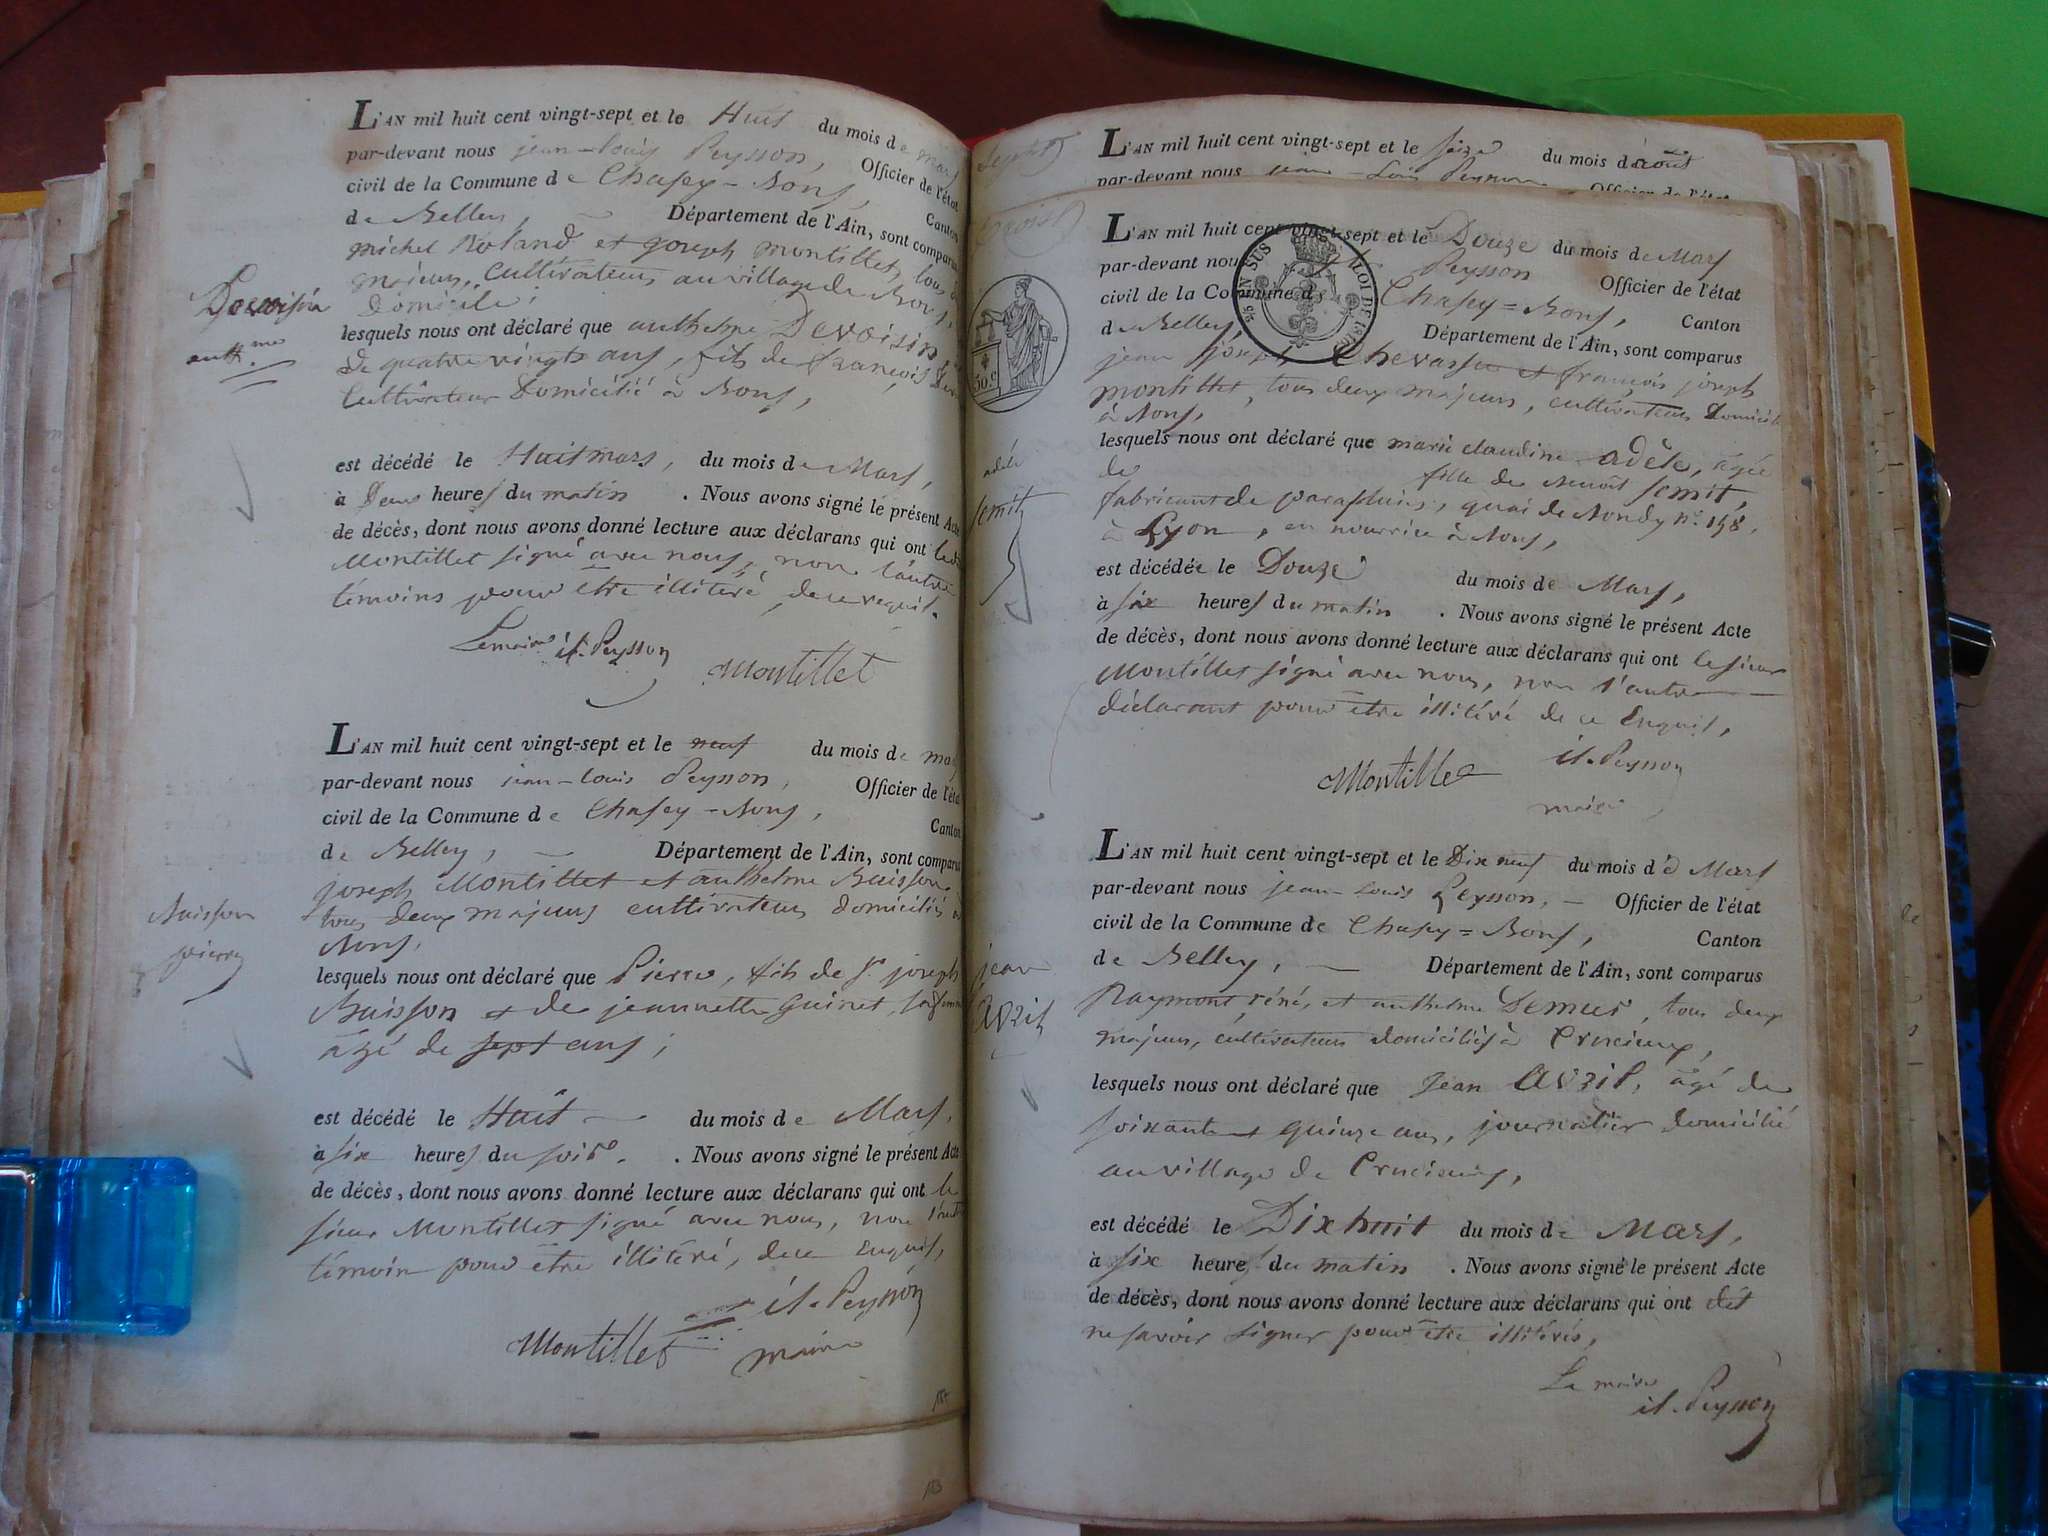 L'AN mil huit cent vingt-sept et le Huit du mois de Mars
par-devant nous jean-louis Peysson, Officier de l'état
civil de la Commune de Chasey-Bons, Canton
de Belley, Département de l'Ain, sont comparus
michel Roland et joseph montillet, tous
majeurs, cultivateurs au village de Bons
Domicile;
lesquels nous ont déclaré que anthelme Devoisin,
de quatre vingts ans, fils de françois
Cultivateur Domicilié à Bons,
Devoisin
anth.me
est décédé le Huit mars, du mois de Mars,
à Deux heures du matin. Nous avons signé le présent Acte
de décès, dont nous avons donné lecture aux déclarans qui ont
Montillet signé avec nous, non l'autre
témoins pour être illitéré, de ce requis.
Le maire jl. Peysson
Montillet
L'AN mil huit cent vingt-sept et le neuf du mois de mars
par-devant nous jean-louis Peysson, Officier de l'état
civil de la Commune de Chasey-Bons, Canton
de Belley, Département de l'Ain, sont comparus
joseph Montillet et anthelme Buisson
tous deux majeurs cultivateurs domiciliés à
Bons,
Buisson
pierre
lesquels nous ont déclaré que Pierre, fils de Sr joseph
Buisson et de jeannette Guinet, sa femme
âgé de sept ans;
est décédé le Huit du mois de Mars,
à six heures du soir. Nous avons signé le présent Acte
de décès, dont nous avons donné lecture aux déclarans qui ont le
sieur Montillet signé avec nous, non l'autre
témoin pour être illitéré, de ce Enquis,
jl. Peysson
Montillet maire
187
183
L'AN mil huit cent vingt-sept et le seize du mois d'août
par-devant nous jean-Louis Peysson Officier de l'état
L'AN mil huit cent vingt-sept et le Douze du mois de Mars
par-devant nous Peysson Officier de l'état
civil de la Commune de Chasey-Bons, Canton
de Belley, Département de l'Ain, sont comparus
jean joseph Chevassu et françois joseph
montillet, tous deux majeurs, cultivateurs Domicil
à Bons,
EN SUS LOI DE
50.c
lesquels nous ont déclaré que marie claudine adèle, âgée
de fille de Benoît Semit,
fabricant de parapluies, quai de Bondy n.° 158,
à Lyon, en nourrice à Bons,
adele
Semit
est décédée le Douze du mois de Mars,
à six heures du matin. Nous avons signé le présent Acte
de décès, dont nous avons donné lecture aux déclarans qui ont le sieur
Montillet signé avec nous, non l'autre
déclarant pour être illitéré de ce Enquis,
Montillet jl. Peysson
maire
L'AN mil huit cent vingt-sept et le Dix neuf du mois de Mars
par-devant nous jean-Louis Peysson, Officier de l'état
civil de la Commune de Chasey-Bons, Canton
de Belley, Département de l'Ain, sont comparus
Raymont réné, et anthelme Demus, tous deux
majeurs, cultivateurs domiciliés à Crucieux,
jean
Avril
lesquels nous ont déclaré que Jean Avril, âgé de
soixante et quinze ans, journalier domicilié
au village de Crucieux,
est décédé le Dix huit du mois de Mars,
à six heures du matin. Nous avons signé le présent Acte
de décès, dont nous avons donné lecture aux déclarans qui ont dit
ne savoir signer pour être illitérés,
Le maire
jl. Peysson